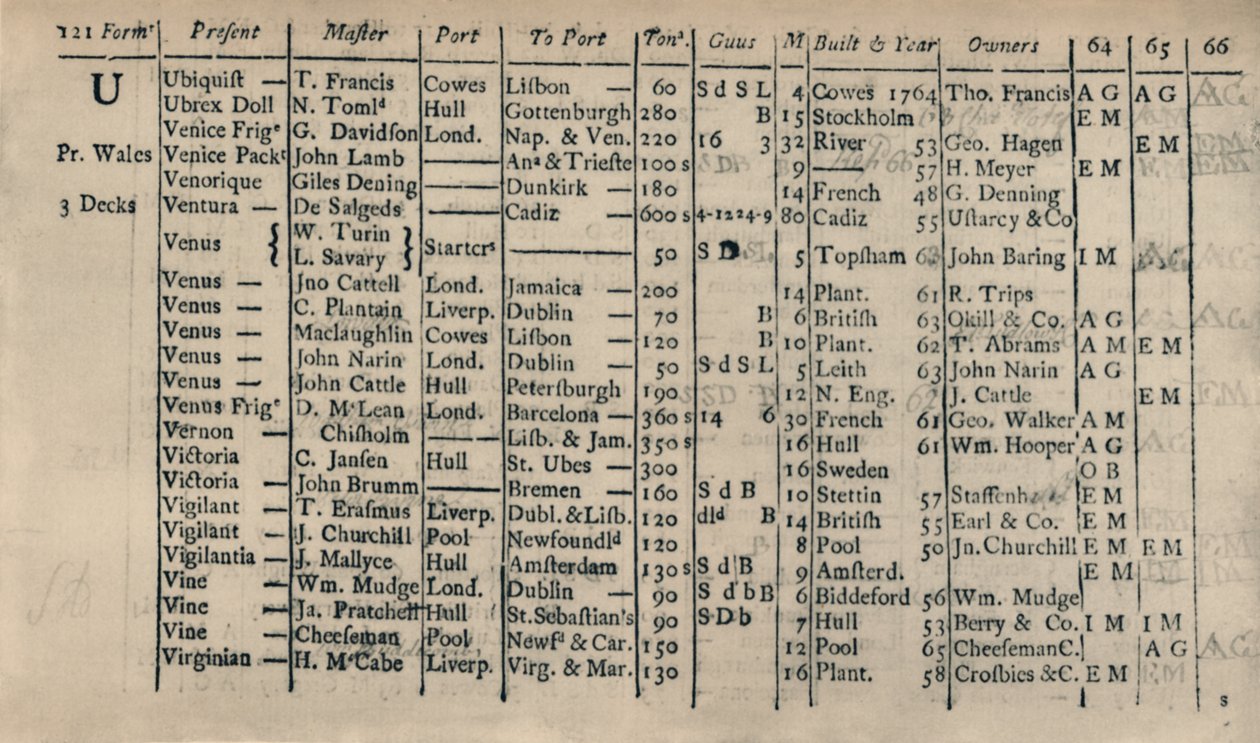 121 Formʳ Preſent Maſter Port To Port Tonˢ. Guus M Built & Year Owners 64 65 66
U Ubiquiſt — T. Francis Cowes Liſbon — 60 S d S L 4 Cowes 1764 Tho. Francis A G A G
Ubrex Doll N. Tomlᵈ Hull Gottenburgh 280 B 15 Stockholm E M
Venice Frigᵉ G. Davidſon Lond. Nap. & Ven. 220 16 3 32 River 53 Geo. Hagen E M
Pr. Wales Venice Packᵗ John Lamb —— Anᵃ & Trieſte 100 s 9 —— 57 H. Meyer E M
Venorique Giles Dening —— Dunkirk — 180 14 French 48 G. Denning
3 Decks Ventura — De Salgeds —— Cadiz — 600 s 4-1224-9 80 Cadiz 55 Uſtarcy & Co
Venus { W. Turin L. Savary } Startcrˢ —— 50 S D 5 Topſham 63 John Baring I M
Venus — Jno Cattell Lond. Jamaica — 200 14 Plant. 61 R. Trips
Venus — C. Plantain Liverp. Dublin — 70 B 6 Britiſh 63 Okill & Co. A G
Venus — Maclaughlin Cowes Liſbon — 120 B 10 Plant. 62 T. Abrams A M E M
Venus — John Narin Lond. Dublin — 50 S d S L 5 Leith 63 John Narin A G
Venus — John Cattle Hull Peterſburgh 190 12 N. Eng. J. Cattle E M
Venus Frigᵉ D. MᶜLean Lond. Barcelona — 360 s 14 6 30 French 61 Geo. Walker A M
Vernon — Chiſholm ——— Liſb. & Jam. 350 s 16 Hull 61 Wm. Hooper A G
Victoria C. Janſen Hull St. Ubes — 300 16 Sweden O B
Victoria — John Brumm —— Bremen — 160 S d B 10 Stettin 57 E M
Vigilant — T. Eraſmus Liverp. Dubl. & Liſb. 120 dlᵈ B 14 Britiſh 55 Earl & Co. E M
Vigilant — J. Churchill Pool Newfoundlᵈ 120 8 Pool 50 Jn. Churchill E M E M
Vigilantia — J. Mallyce Hull Amſterdam 130 s S d B 9 Amſterd. E M
Vine — Wm. Mudge Lond. Dublin — 90 S d b B 6 Biddeford 56 Wm. Mudge
Vine — Ja. Pratchett Hull St. Sebaſtian's 90 S D b 7 Hull 53 Berry & Co. I M I M
Vine — Cheeſeman Pool Newfᵈ & Car. 150 12 Pool 65 Cheeſeman C. A G
Virginian — H. MᶜCabe Liverp. Virg. & Mar. 130 16 Plant. 58 Croſbies & C. E M
s